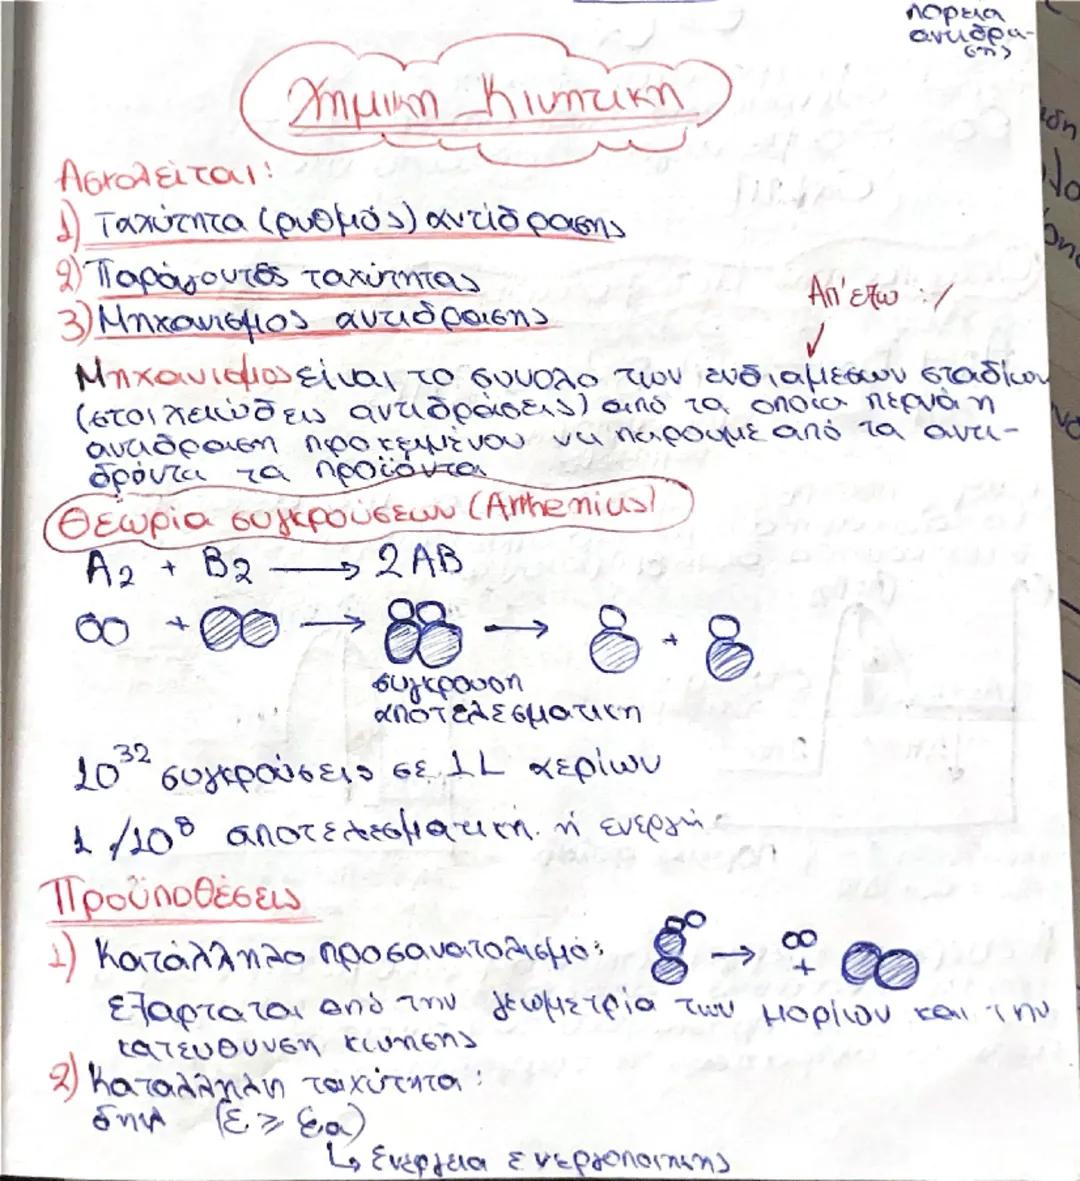 πορεια
αντιδρα-
σης
Χημικη Κινητικη
Ασχολείται:
1) Ταχύτητα (ρυθμός) αντίδρασης
2) Παράγοντες ταχύτητας
3) Μηχανισμος αντιδρασης
Απ'εξω :-/
Μηχανισμος είναι το συνολο των ενδιαμεσων σταδίων
(στοιχειώδεις αντιδράσεις) από τα οποία περνά η
αντιδραση προκειμένου να παρουμε από τα αντι-
δρόντα τα προϊόντα
Θεωρία συγκρούσεων (Arrhenius)
A2 + B2 → 2AB
+ → → +
συγκρουση
αποτελεσματικη
10³² συγκρούσεις σε 1L αερίων
1/10⁸ αποτελεσματικη ή ενεργή
Προϋποθέσεις
1) Κατάλληλο προσανατολισμό: → +
εξαρταται από την γεωμετρία των μορίων και την
κατευθυνση κινησης
2) Καταλληλη ταχύτητα:
δηλ (ε ≥ εα)
↳ Ενεργεια ενεργοποιησης